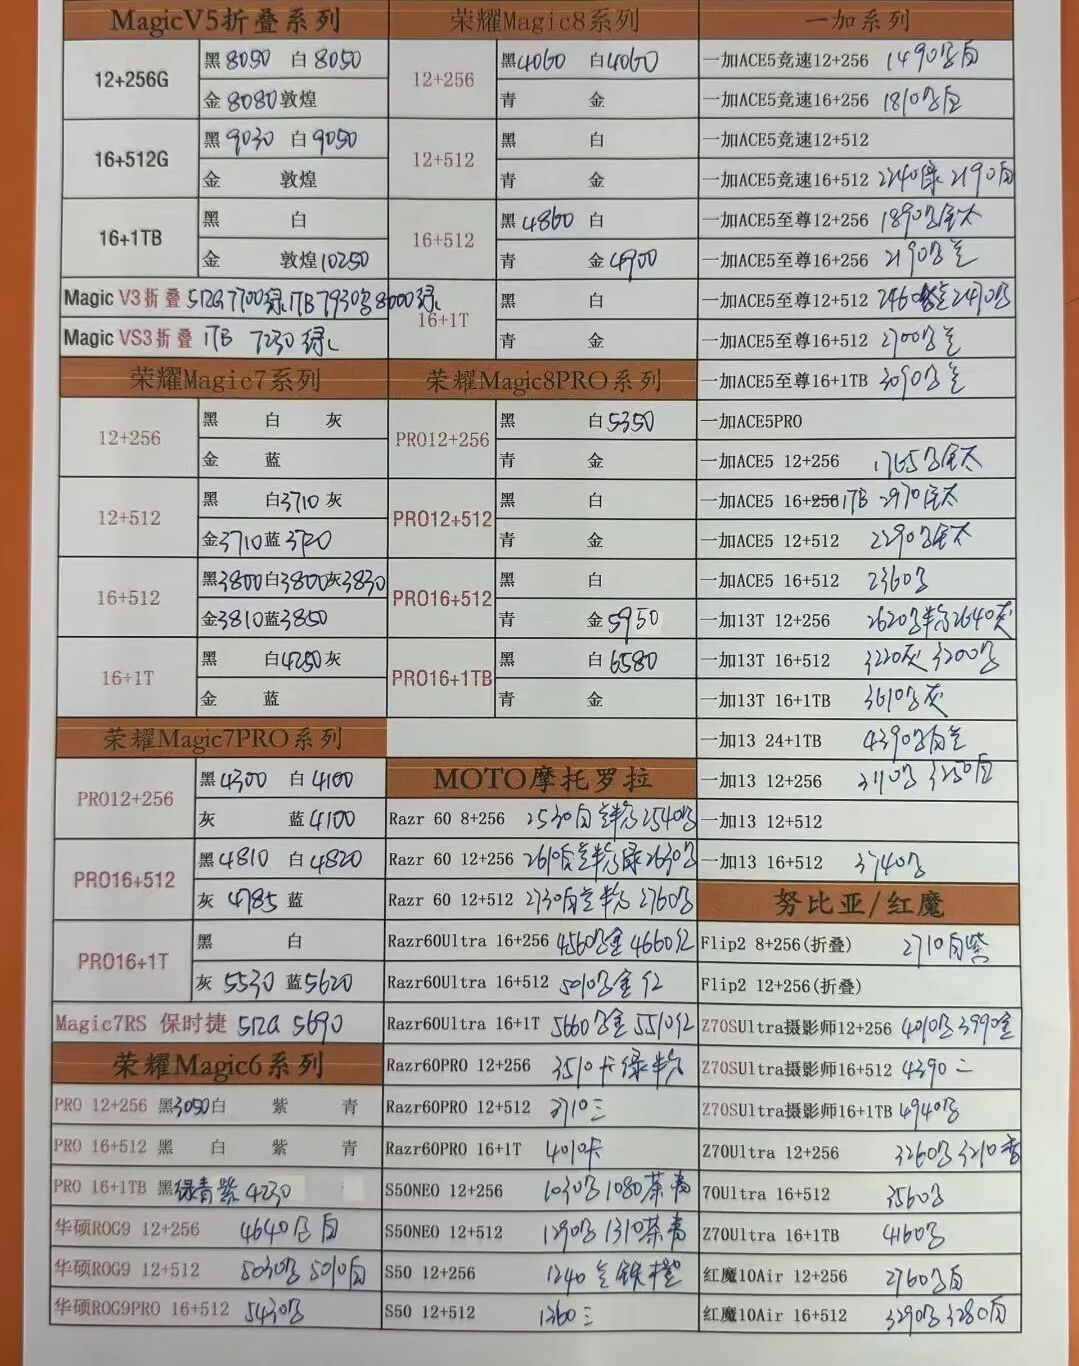 MagicV5折叠系列
12+256G
黑8050 白8050
金8080敦煌
16+512G
黑9030 白9050
金 敦煌
16+1TB
黑 白
金 敦煌10250
Magic V3折叠 512G7700绿1TB7930 8000绿
Magic VS3折叠 1TB 7230绿
荣耀Magic7系列
12+256
黑 白 灰
金 蓝
12+512
黑 白3710灰
金3710蓝3720
16+512
黑3800白3800灰3830
金3810蓝3850
16+1T
黑 白4250灰
金 蓝
荣耀Magic7PRO系列
PRO12+256
黑4300 白4100
灰 蓝4100
PRO16+512
黑4810 白4820
灰 4785 蓝
PRO16+1T
黑 白
灰 5530 蓝5620
Magic7RS 保时捷 512G 5690
荣耀Magic6系列
PRO 12+256 黑3050白 紫 青
PRO 16+512 黑 白 紫 青
PRO 16+1TB 黑绿青紫4230
华硕ROG9 12+256 4640 白
华硕ROG9 12+512 5030 5010白
华硕ROG9PRO 16+512 5430
荣耀Magic8系列
12+256
黑4060 白4060
青 金
12+512
黑 白
青 金
16+512
黑4860 白
青 金4900
16+1T
黑 白
青 金
荣耀Magic8PRO系列
PRO12+256
黑 白5350
青 金
PRO12+512
黑 白
青 金
PRO16+512
黑 白
青 金5950
PRO16+1TB
黑 白6580
青 金
MOTO摩托罗拉
Razr 60 8+256 2530白 2540
Razr 60 12+256 2610 绿2630
Razr 60 12+512 2730 2760
Razr60Ultra 16+256 4560 金 4660红
Razr60Ultra 16+512 5010 金 红
Razr60Ultra 16+1T 5660 金 5510红
Razr60PRO 12+256 3510卡绿
Razr60PRO 12+512 3710三
Razr60PRO 16+1T 4010卡
S50NEO 12+256 1030 1080茶青
S50NEO 12+512 1290 1310茶青
S50 12+256 1240
S50 12+512 1360三
一加系列
一加ACE5竞速12+256 1490 白
一加ACE5竞速16+256 1810 白
一加ACE5竞速12+512
一加ACE5竞速16+512 2240绿 2190白
一加ACE5至尊12+256 1890 钛
一加ACE5至尊16+256 2190
一加ACE5至尊12+512 2460 2470
一加ACE5至尊16+512 2700
一加ACE5至尊16+1TB 3090
一加ACE5PRO
一加ACE5 12+256 1765 钛
一加ACE5 16+256 1TB 2970 钛
一加ACE5 12+512 2290 钛
一加ACE5 16+512 2360
一加13T 12+256 2620 2640灰
一加13T 16+512 3220灰 3200
一加13T 16+1TB 3610 灰
一加13 24+1TB 4390 白
一加13 12+256 3110 3250白
一加13 12+512
一加13 16+512 3740
努比亚/红魔
Flip2 8+256(折叠) 2710白紫
Flip2 12+256(折叠)
Z70SUltra摄影师12+256 4010 3990
Z70SUltra摄影师16+512 4390 二
Z70SUltra摄影师16+1TB 4940
Z70Ultra 12+256 3260 3210
70Ultra 16+512 3560
Z70Ultra 16+1TB 4160
红魔10Air 12+256 2760 白
红魔10Air 16+512 3290 3280白